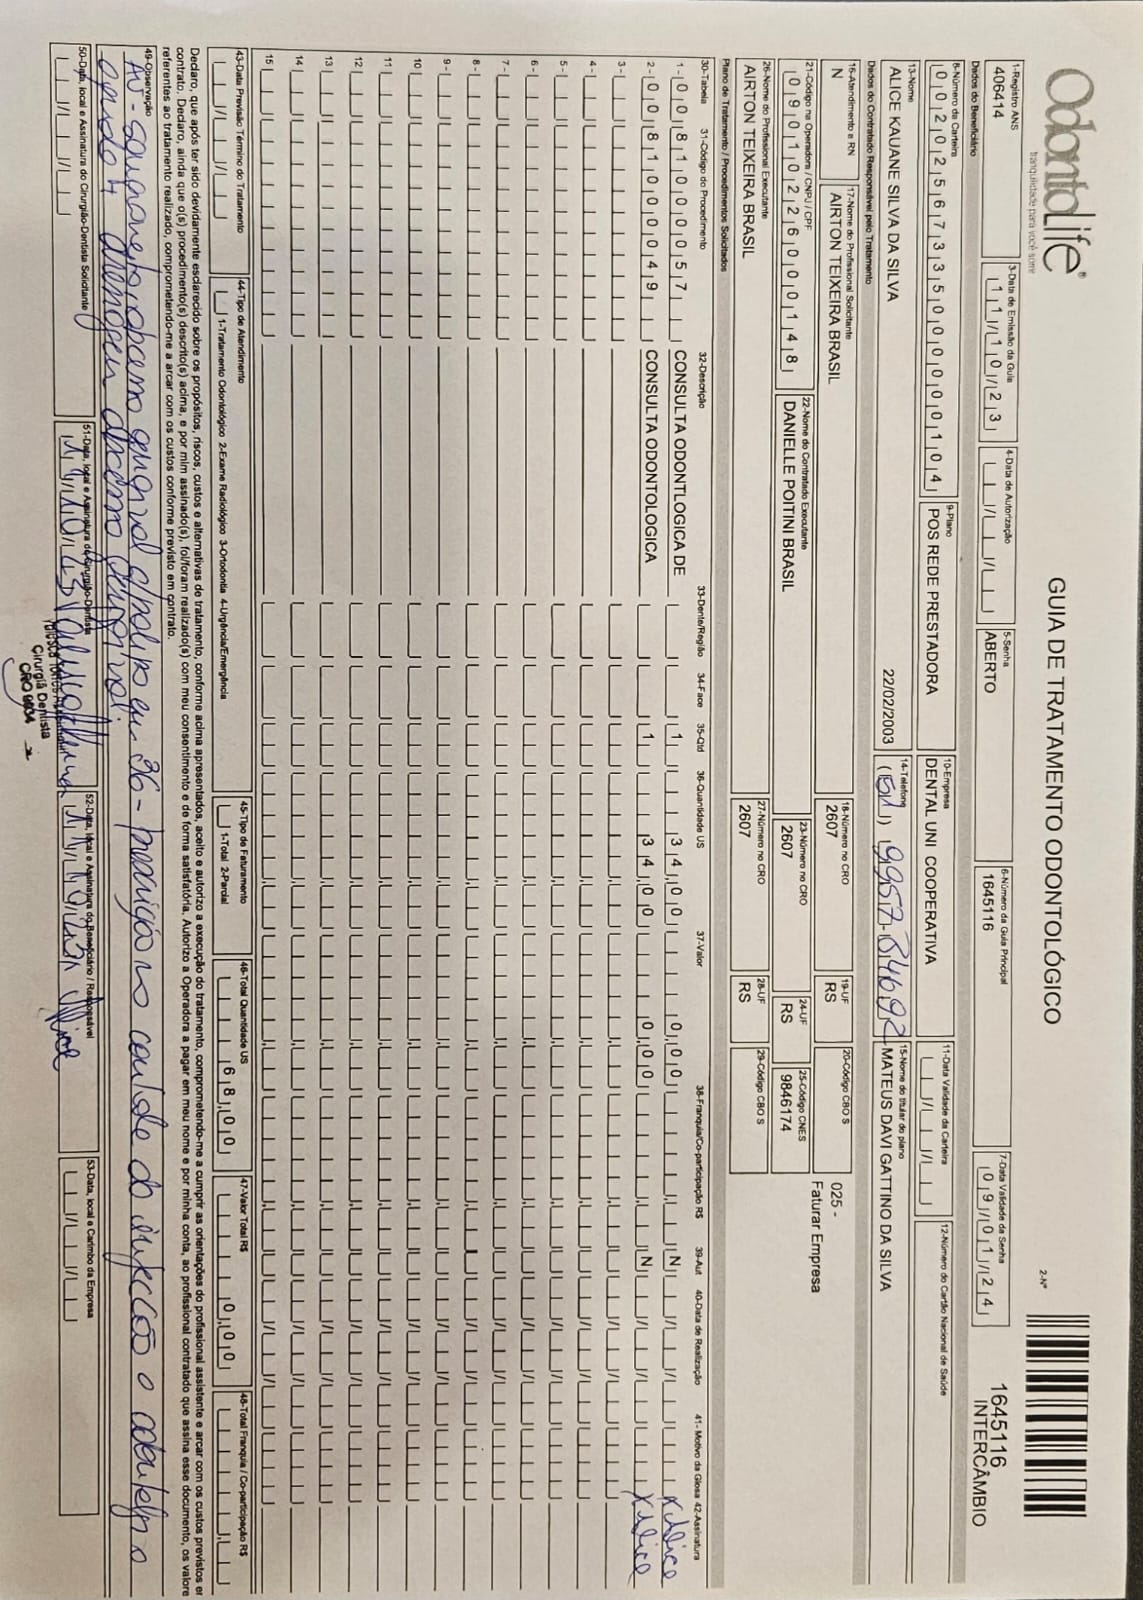 OdontoLife®
tranquilidade para você sorrir
GUIA DE TRATAMENTO ODONTOLÓGICO
2-Nº
1645116
INTERCÂMBIO
1-Registro ANS
406414
3-Data de Emissão da Guia
11/10/23
4-Data de Autorização
5-Senha
ABERTO
6-Número da Guia Principal
1645116
7-Data Validade da Senha
09/01/24
Dados do Beneficiário
8-Número da Carteira
00202567335000000104
9-Plano
POS REDE PRESTADORA
10-Empresa
DENTAL UNI COOPERATIVA
11-Data Validade da Carteira
12-Número do Cartão Nacional de Saúde
13-Nome
ALICE KAUANE SILVA DA SILVA
22/02/2003
14-Telefone
15-Nome do titular do plano
MATEUS DAVI GATTINO DA SILVA
Dados do Contratado Responsável pelo Tratamento
16-Atendimento a RN
N
17-Nome do Profissional Solicitante
AIRTON TEIXEIRA BRASIL
18-Número no CRO
2607
19-UF
RS
20-Código CBO S
025 -
Faturar Empresa
21-Código na Operadora / CNPJ / CPF
09010226000148
22-Nome do Contratado Executante
DANIELLE POITINI BRASIL
23-Número no CRO
2607
24-UF
RS
25-Código CNES
9846174
26-Nome do Profissional Executante
AIRTON TEIXEIRA BRASIL
27-Número no CRO
2607
28-UF
RS
29-Código CBO S
Plano de Tratamento / Procedimentos Solicitados
30-Tabela 31-Código do Procedimento 32-Descrição 33-Dente/Região 34-Face 35-Qtd 36-Quantidade US 37-Valor 38-Franquia/Co-participação R$ 39-Aut 40-Data de Realização 41- Motivo da Glosa 42-Assinatura
1 - 00 81000057 CONSULTA ODONTLOGICA DE 1 34,00 0,00 N Alice
2 - 00 81000049 CONSULTA ODONTOLOGICA 1 34,00 0,00 N Alice
3 -
4 -
5 -
6 -
7 -
8 -
9 -
10
11
12
13
14
15
43-Data Previsão Término do Tratamento
44-Tipo de Atendimento
1-Tratamento Odontológico 2-Exame Radiológico 3-Ortodontia 4-Urgência/Emergência
45-Tipo de Faturamento
1-Total 2-Parcial
46-Total Quantidade US
68,00
47-Valor Total R$
0,00
48-Total Franquia / Co-participação R$
Declaro, que após ter sido devidamente esclarecido sobre os propósitos, riscos, custos e alternativas de tratamento, conforme acima apresentados, aceito e autorizo a execução do tratamento, comprometendo-me a cumprir as orientações do profissional assistente e arcar com os custos previstos em
contrato. Declaro, ainda que o(s) procedimento(s) descrito(s) acima, e por mim assinado(s), foi/foram realizado(s) com meu consentimento e de forma satisfatória. Autorizo a Operadora a pagar em meu nome e por minha conta, ao profissional contratado que assina esse documento, os valores
referentes ao tratamento realizado, comprometendo-me a arcar com os custos conforme previsto em contrato.
49-Observação
abscesso gengival c/pólipo em 36 -
abscesso gengival.
50-Data, local e Assinatura do Cirurgião-Dentista Solicitante
51-Data, local e Assinatura do Cirurgião-Dentista
11/10/23
52-Data, local e Assinatura do Beneficiário / Responsável
11/10/23 Alice
53-Data, local e Carimbo da Empresa
Cirurgiã Dentista